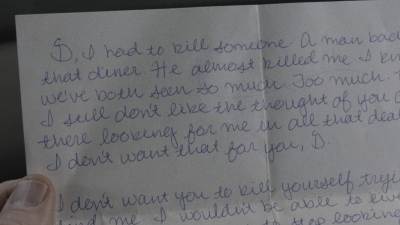 D, I had to kill someone. A man bad
that diner. He almost killed me I kn
we've both seen so much. Too much.
I still don't like the thought of you o
there looking for me in all that dea
I don't want that for you, D.
I don't want you to kill yourself tryi
find me. I wouldn't be able to live
to stop looking